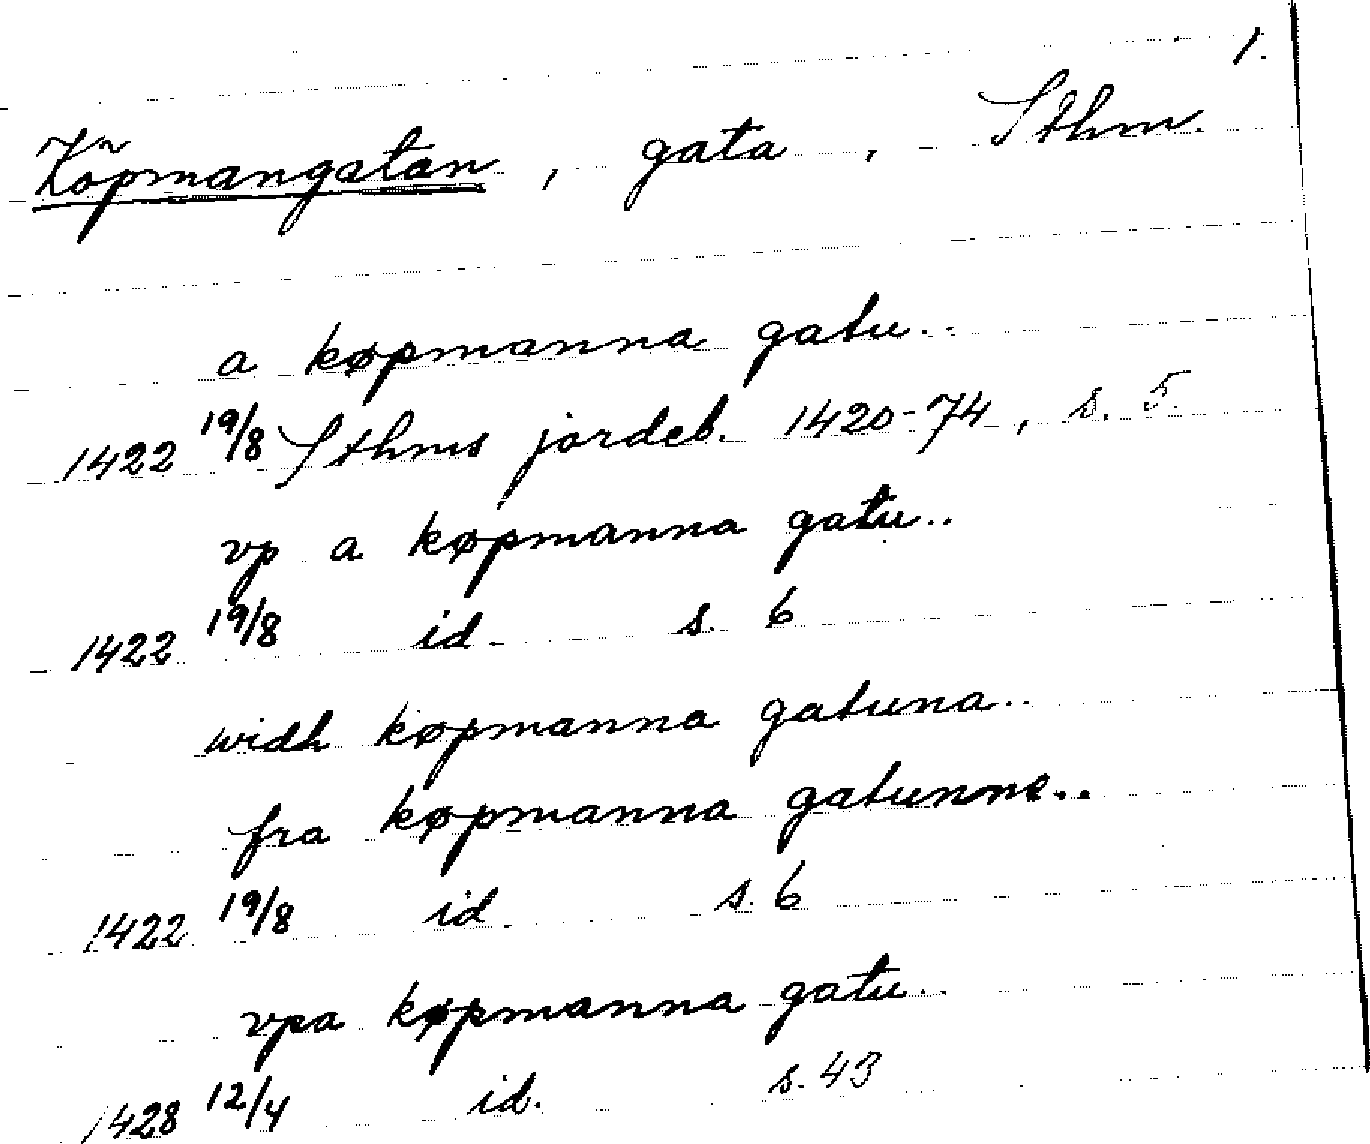 1.
Köpmangatan, gata, Sthm.
a køpmanna gatu..
1422 19/8 Sthms jordeb. 1420-74, s. 5.
vp a køpmanna gatu..
1422 19/8 id. s. 6
widh køpmanna gatuna..
fra køpmanna gatunne..
1422 19/8 id s. 6
vpa køpmanna gatu..
1428 12/4 id. s. 43